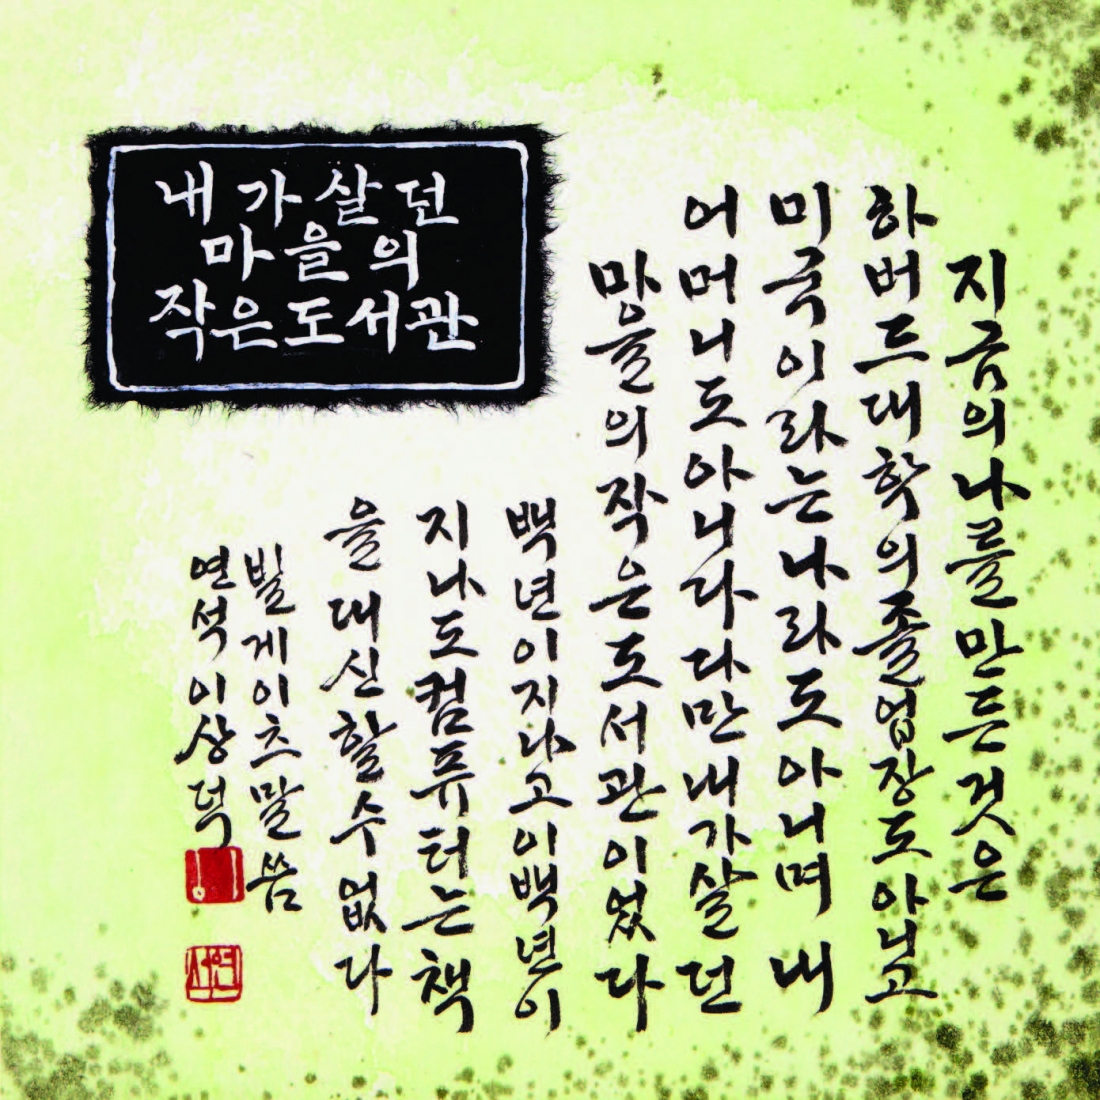 내가살던
마을의
작은도서관
지금의나를만든것은
하버드대학의졸업장도아닌고
미국이라는나라도아니며 내
어머니도아니다다만내가살던
마을의작은도서관이었다
백년이지나고이백년이
지나도컴퓨터는책
을대신할수없다
빌게이츠말씀
연석이상덕